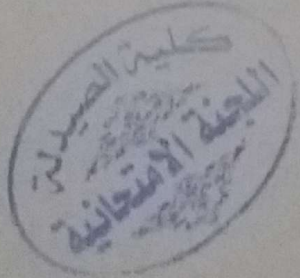 كلية الصيدلة
اللجنة الامتحانية